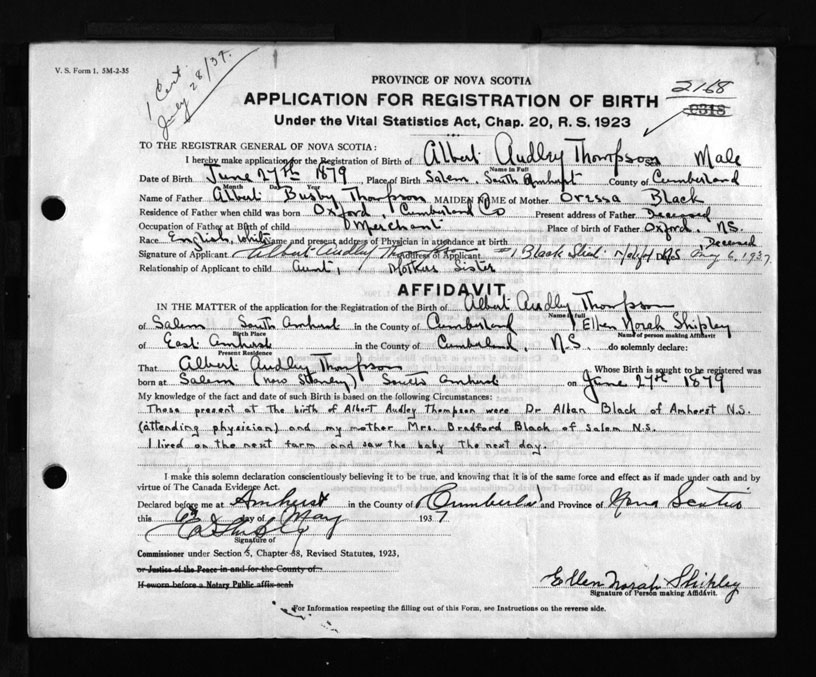 V. S. Form 1. 5M-2-35
1 Cert.
July 28/37.
PROVINCE OF NOVA SCOTIA
2168
APPLICATION FOR REGISTRATION OF BIRTH
Under the Vital Statistics Act, Chap. 20, R. S. 1923
TO THE REGISTRAR GENERAL OF NOVA SCOTIA:
I hereby make application for the Registration of Birth of Albert Audley Thompson Male
Name in Full
Date of Birth June 27th 1879 Place of Birth Salem, South Amherst County of Cumberland
Month Day Year
Name of Father Albert Busby Thompson MAIDEN NAME of Mother Oressa Black
Residence of Father when child was born Oxford, Cumberland Co Present address of Father Deceased
Occupation of Father at Birth of child Merchant Place of birth of Father Oxford, N.S.
Race English, White Name and present address of Physician in attendance at birth Deceased
Signature of Applicant Albert Audley Thompson Address of Applicant Black May 6, 1937.
Relationship of Applicant to child Aunt, Mothers Sister
AFFIDAVIT
IN THE MATTER of the application for the Registration of the Birth of Albert Audley Thompson
Name in full
of Salem South Amherst in the County of Cumberland I Ellen Norah Shipley
Birth Place Name of person making Affidavit
of East Amherst in the County of Cumberland, N.S. do solemnly declare:
Present Residence
That Albert Audley Thompson Whose Birth is sought to be registered was
born at Salem (now Stanley) South Amherst on June 27th 1879
My knowledge of the fact and date of such Birth is based on the following Circumstances:
Those present at the birth of Albert Audley Thompson were Dr Alban Black of Amherst N.S.
(attending physician) and my mother Mrs. Bradford Black of Salem N.S.
I lived on the next farm and saw the baby the next day.
I make this solemn declaration conscientiously believing it to be true, and knowing that it is of the same force and effect as if made under oath and by
virtue of The Canada Evidence Act.
Declared before me at Amherst in the County of Cumberland and Province of Nova Scotia
this 6th day of May 1937
Signature of
Commissioner under Section 3, Chapter 38, Revised Statutes, 1923,
or Justice of the Peace in and for the County of
If sworn before a Notary Public affix seal
Ellen Norah Shipley
Signature of Person making Affidavit.
For Information respecting the filling out of this Form, see Instructions on the reverse side.